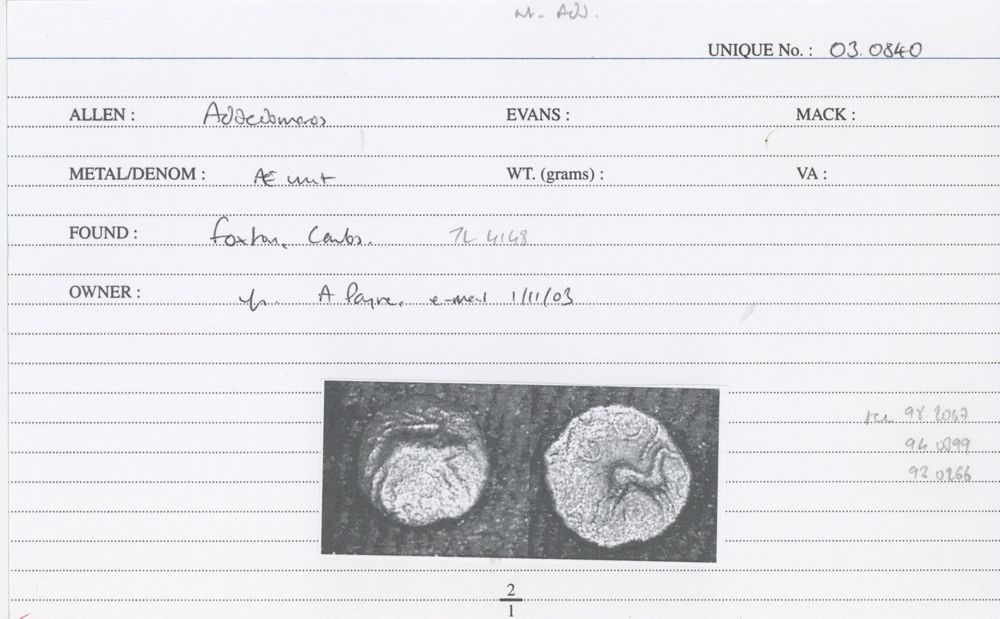 Add.
UNIQUE No. : 03.0840
ALLEN : Addedomaros EVANS : MACK :
METAL/DENOM : Æ unit WT. (grams) : VA :
FOUND : Foxton, Cambs. TL 4148
OWNER : A Payne, e-mail 1/11/03
98.2067
94.0899
93.0266
2
1